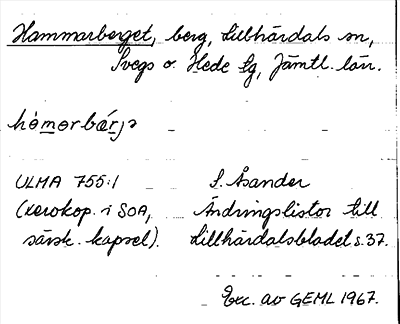 Hammarberget, berg, Lillhärdals sn,
Svegs o. Hede tg, Jämtl. län.
hòmərbǽrjə
ULMA 755:1 S. Åsander
(xerokop. i SOA, Ändringslistor till
särsk. kapsel). Lillhärdalsbladet s. 37.
Exc. av GEML 1967.